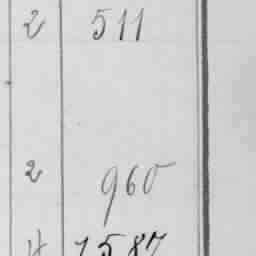 2 511
2 960
4 1587